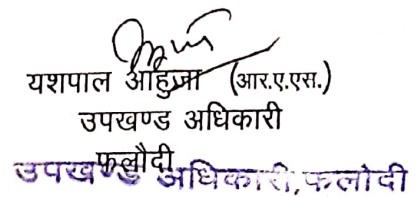 यशपाल आहुजा (आर.ए.एस.)
उपखण्ड अधिकारी
फलौदी
उपखण्ड अधिकारी, फलोदी